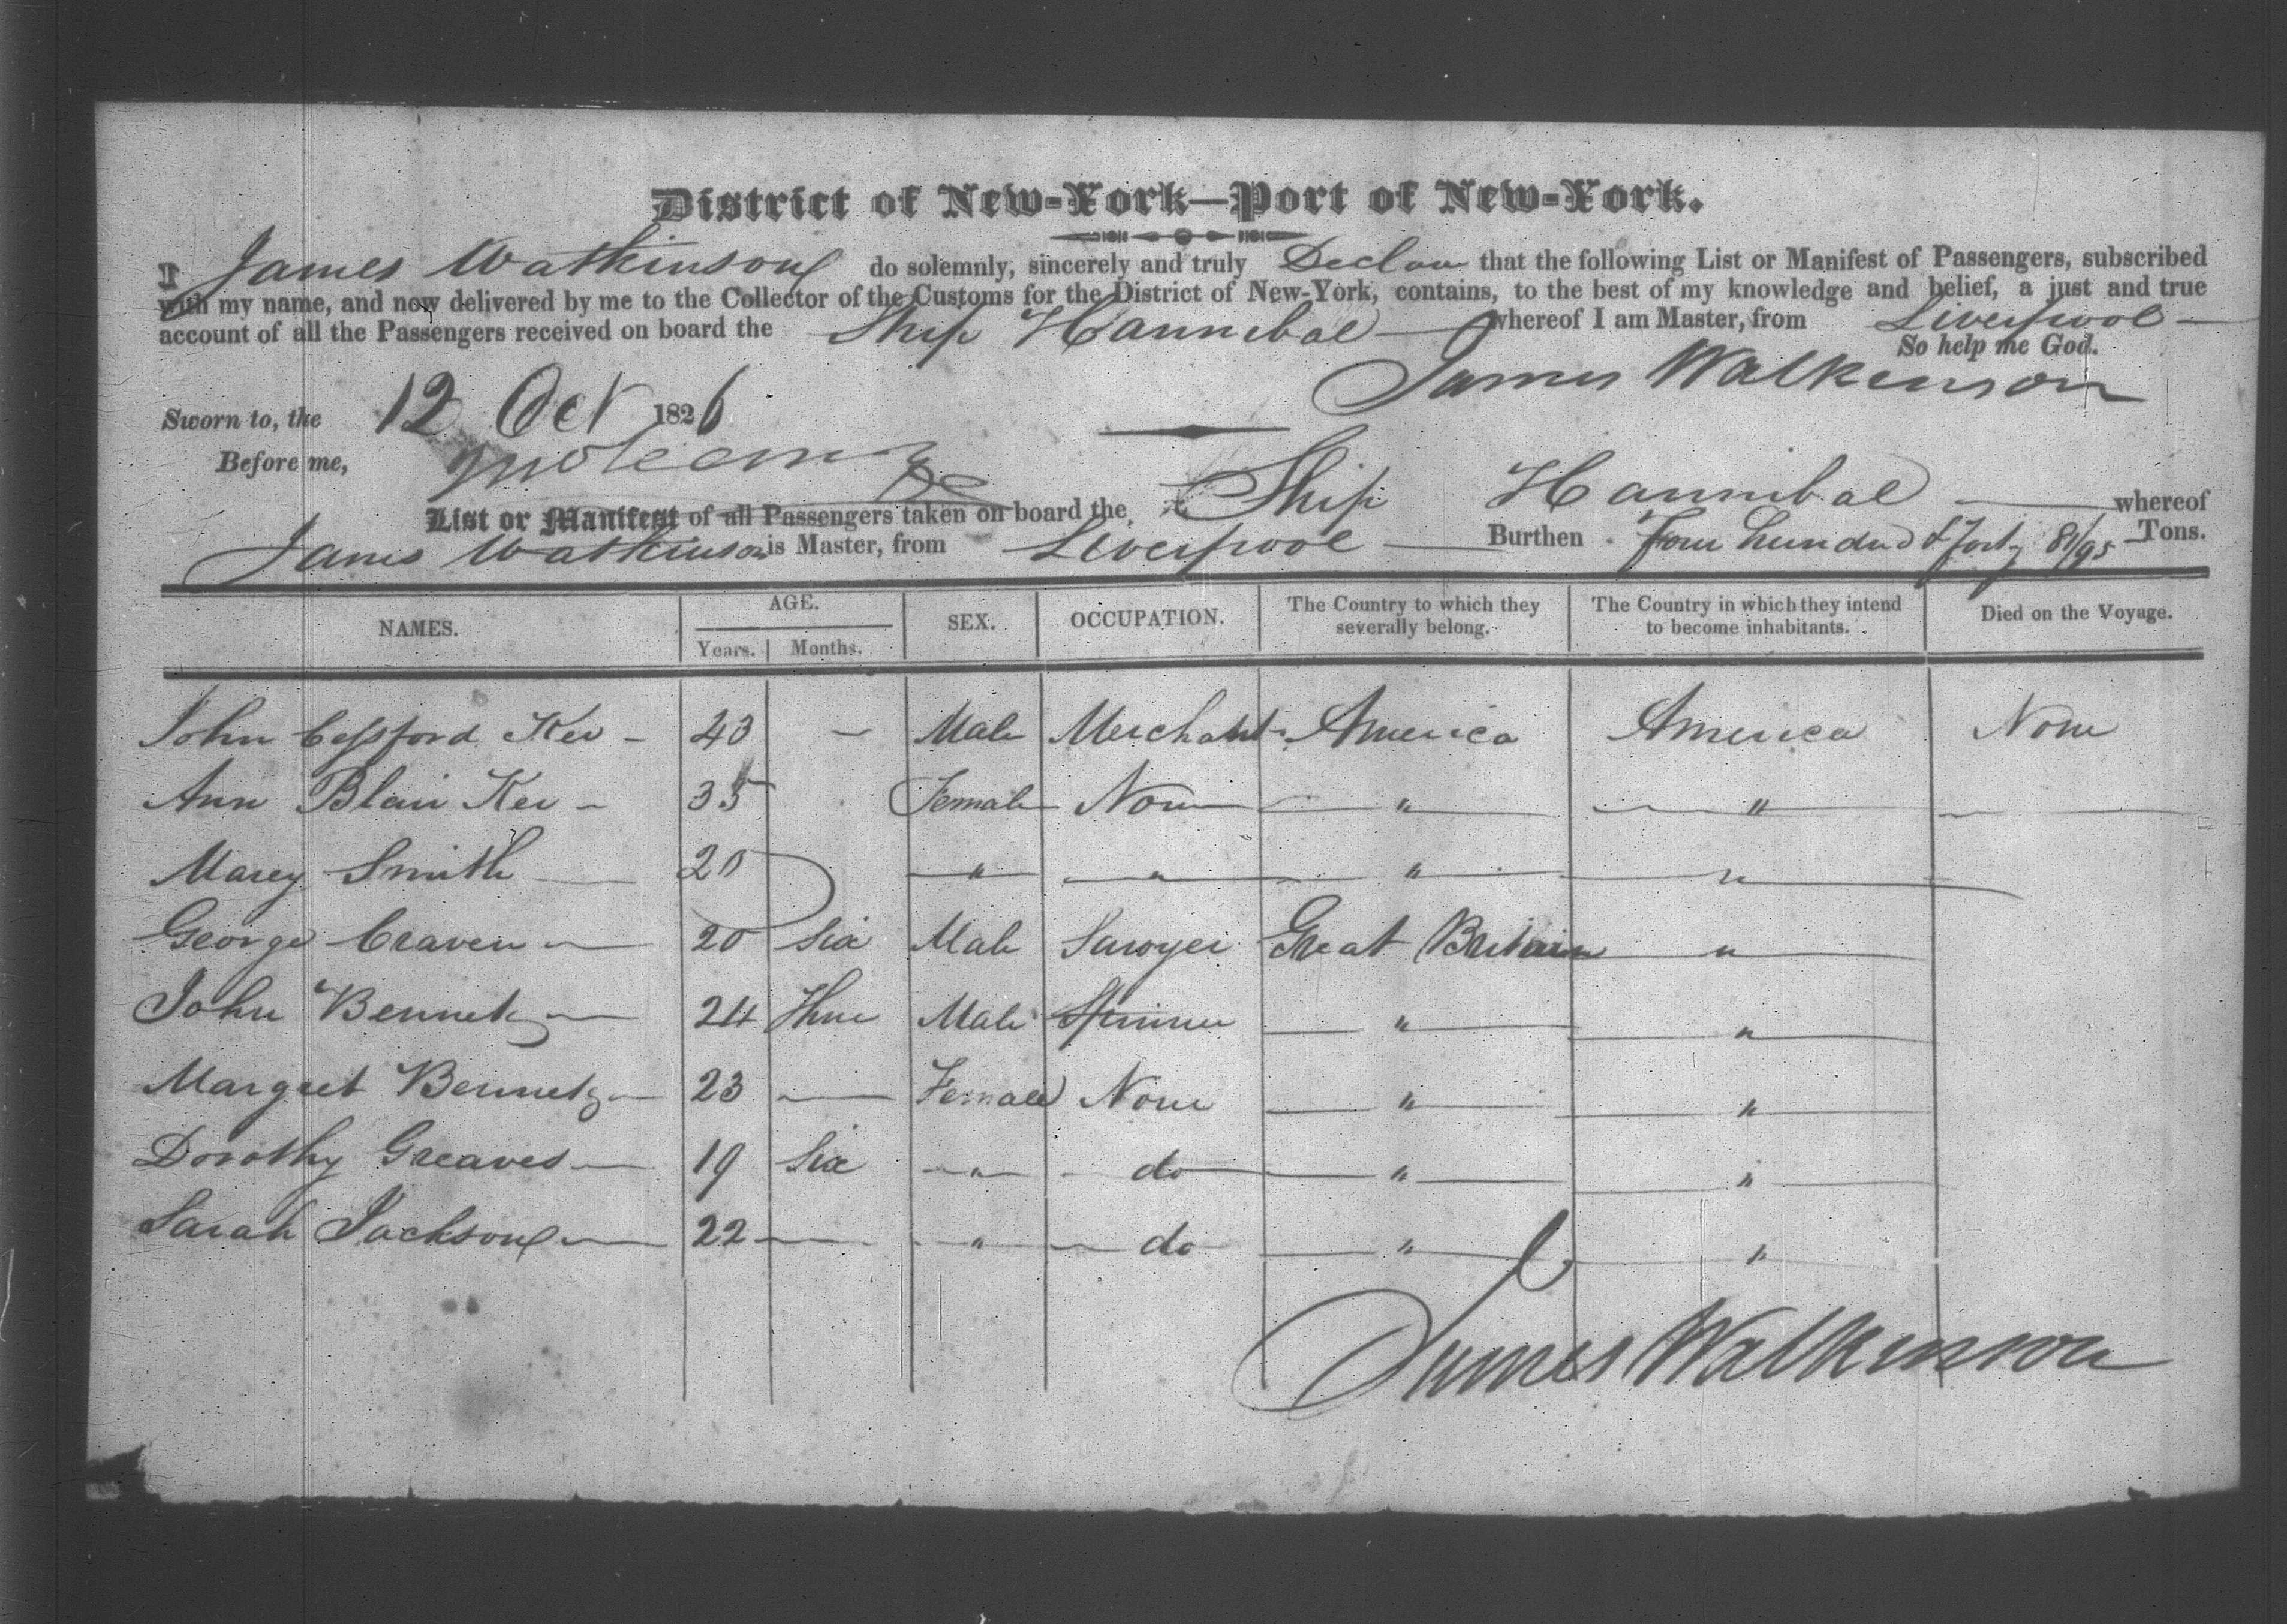 District of New-York—Port of New-York.
I James Watkinson do solemnly, sincerely and truly Declare that the following List or Manifest of Passengers, subscribed
with my name, and now delivered by me to the Collector of the Customs for the District of New-York, contains, to the best of my knowledge and belief, a just and true
account of all the Passengers received on board the Ship Hannibal whereof I am Master, from Liverpool
So help me God.
James Watkinson
Sworn to, the 12 Oct 1826
Before me,
List or Manifest of all Passengers taken on board the Ship Hannibal whereof
James Watkinson is Master, from Liverpool Burthen Four hundred & forty 81/95 Tons.
NAMES. AGE. Years. Months. SEX. OCCUPATION. The Country to which they severally belong. The Country in which they intend to become inhabitants. Died on the Voyage.
John Cessford Ker 43 — Male Merchant America America None
Ann Blair Ker 35 Female None " "
Marey Smith 20 " " " "
George Craven 20 Six Male Sawyer Great Britain "
John Bennet 24 Three Male Spinner " "
Margret Bennet 23 — Female None " "
Dorothy Greaves 19 Six " do " "
Sarah Jackson 22 — " do " "
James Watkinson